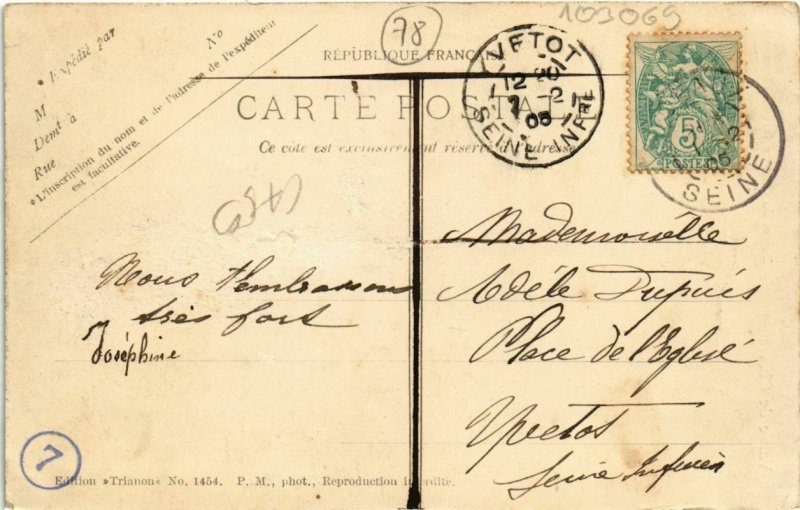 78
103069
No
*Expédié par
M
Demt à
Rue
*L'inscription du nom et de l'adresse de l'expéditeur
est facultative.
RÉPUBLIQUE FRANÇAI
CARTE POSTAL
Ce côté est exclusivement réservé à l'adresse
YVETOT
12 20
7 2
05
SEINE INFRE
5c
POSTES
05
SEINE
Nous t'embrassons
très fort
Joséphine
Mademoiselle
Adèle Dupuis
Place de l'Eglise
Yvetot
Seine Inférieure
7
Edition »Trianon« No. 1454. P. M., phot., Reproduction interdite.